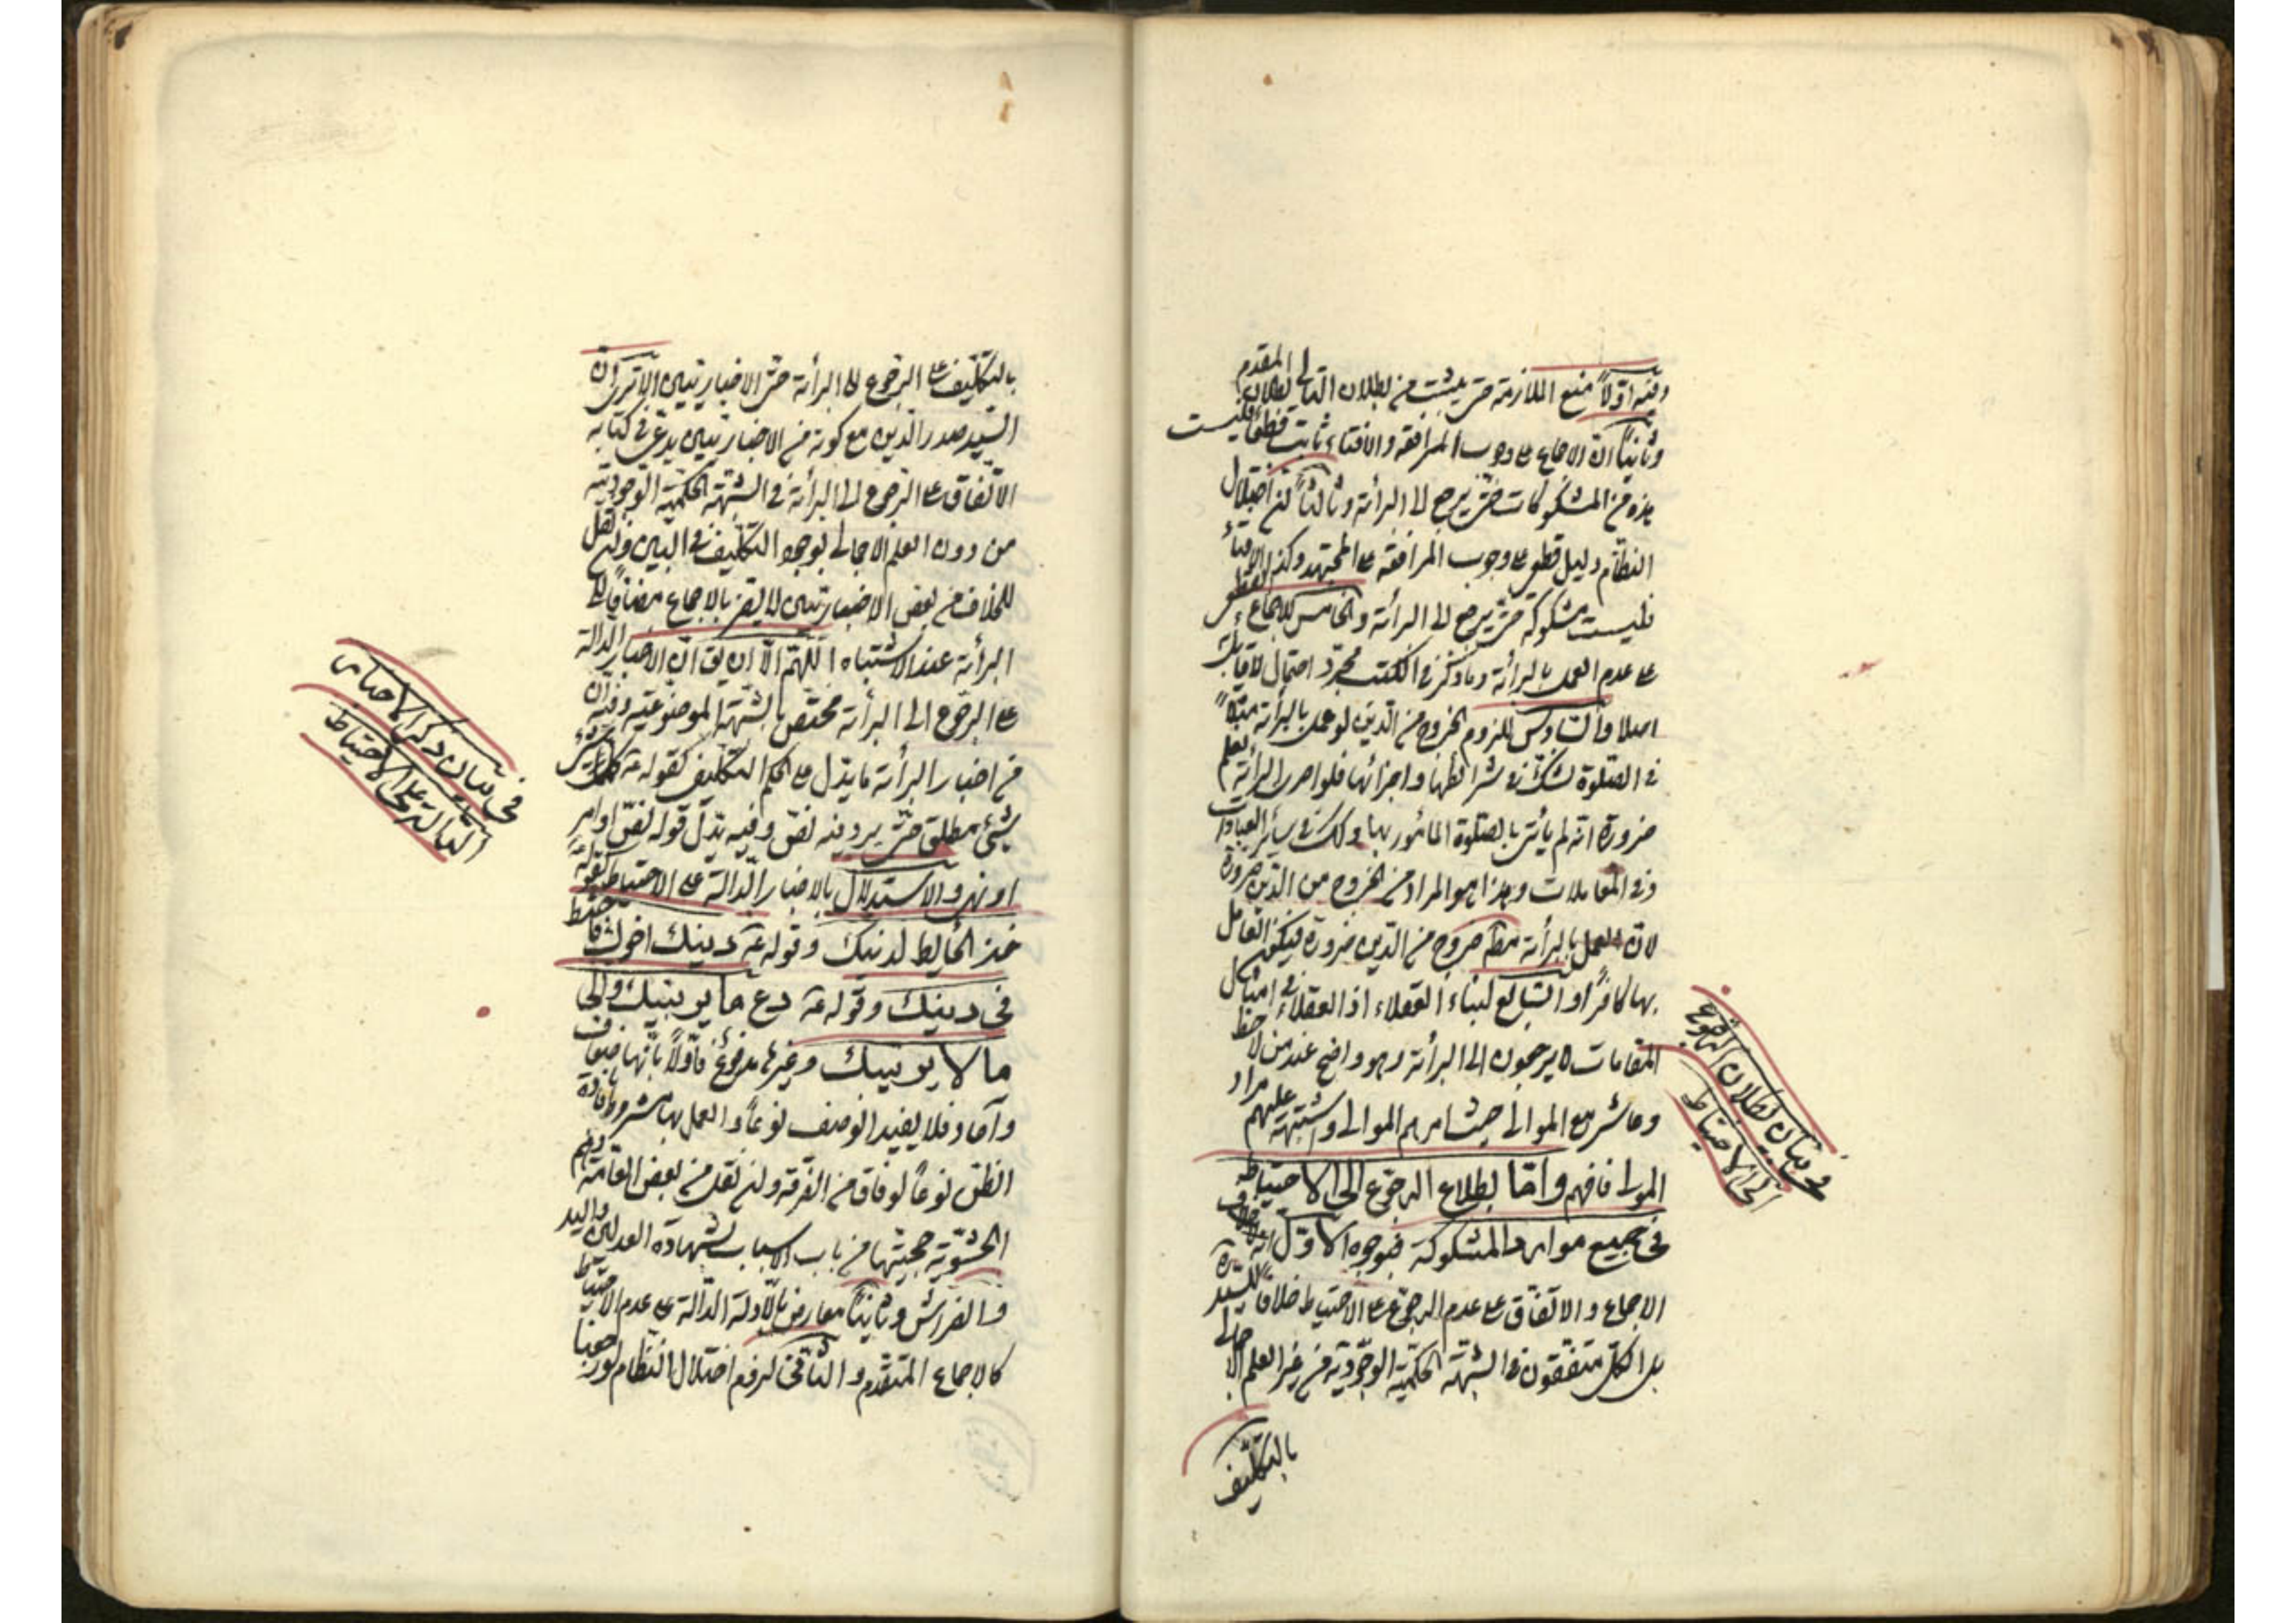 وفيه اولاً منع الملازمة حتى يثبت من بطلان التالي بطلان المقدم
وثانياً ان الاجماع على وجوب المرافقة والافتاء ثابت قطعاً فليست
هذه من المشكوكات حتى يرجع الى البرائة وثالثاً لن اختلال
النظام دليل قطعي على وجوب المرافقة على المجتهد وكذا الافتاء
فليست مشكوكة حتى يرجع الى البرائة والخامس للاجماع القطعي
على عدم العمل بالبرائة وما ذكر في الكتب مجرد احتمال لا قايل به
اصلا والسادس للزوم الخروج من الدين لو عمل بالبرائة مثلاً
في الصلوة لشك في شرائطها واجزائها فلو اجرى البرائة يعلم
ضرورة انه لم يأت بالصلوة المأمور بها وكذلك في سائر العبادات
وفي المعاملات وهذا هو المراد من الخروج من الدين ضرورة
لان العمل بالبرائة مط خروج من الدين ضرورة فيكون العامل
بها كافراً والسابع لبناء العقلاء اذ العقلاء في امثال
المقامات لا يرجعون الى البرائة وهو واضح عند من لاحظ
وعاشر مع الموالي حيث امرهم الموالي واشتبه عليهم مراد
المولى فافهم واما بطلان الرجوع الى الاحتياط
في جميع موارد المشكوكة فبوجوه الاول
الاجماع والاتفاق على عدم الرجوع على الاحتياط خلافاً للسيد
بل الكل متفقون في الشبهة الحكمية الوجودية من غير العلم الاجمالي
بالتكليف
في بيان بطلان الرجوع
الى الاحتياط
بالتكليف على الرجوع الى البرائة حتى الاخباريين الا ترى ان
السيد صدر الدين مع كونه من الاخباريين يدعى في كتابه
الاتفاق على الرجوع الى البرائة في الشبهة الحكمية الوجودية
من دون العلم الاجمالي بوجود التكليف في البين ولن نقل
للخلاف من بعض الاخباريين لا يضر بالاجماع مضافاً الى
البرائة عند الاشتباه اللهم الا ان يق ان الاخبار الدالة
على الرجوع الى البرائة مختص بالشبهة الموضوعية وفيه ان
من اخبار البرائة ما يدل على الحكم التكليف كقوله ع كل
شيء مطلق حتى يرد فيه نص وفيه يدل قوله نص اوامر
او نهي والاستدلال بالاخبار الدالة على الاحتياط كقوله ع
خذ الحايط لدينك وقوله ع دينك اخوك فاحتط
في دينك وقوله ع دع ما يريبك والى
ما لا يريبك وغيرها مدفوع فاولاً بانها ضعاف
وآحاد فلا يفيد الوصف نوعاً والعمل بها مشروط بافادة
الظن نوعاً لوفاق من الفرقة ولن نقل من بعض العامة وهم
الحشوية حجيتها من باب الاسباب لشهادة العدلين واليد
والفراش وثانياً معارض بالادلة الدالة على عدم الاحتياط
كالاجماع المتقدم والنافي لرفع اختلال النظام لو رجعنا
في بيان ذكر الاخبار
الدالة على الاحتياط